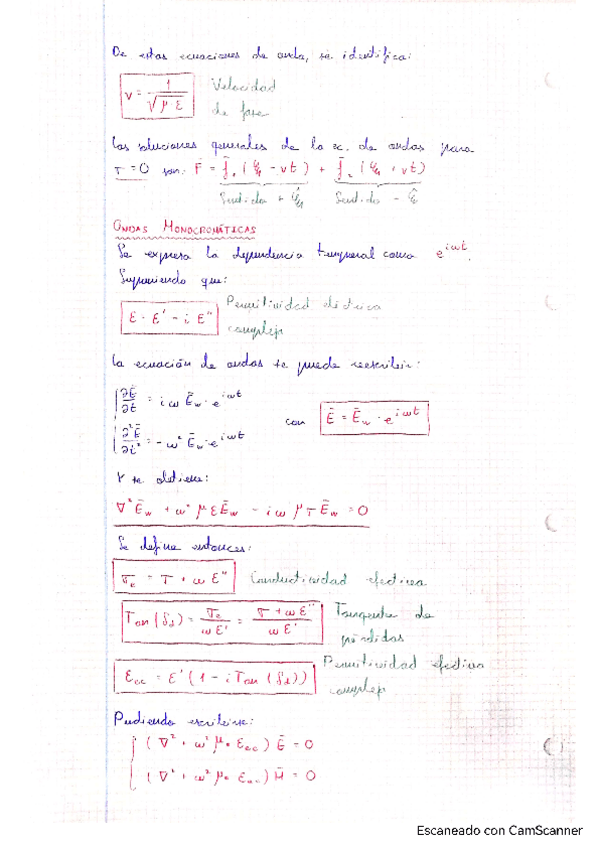 De estas ecuaciones de onda, se identifica:
v = 1/√(μ ε) Velocidad de fase
Las soluciones generales de la ec. de ondas para
σ = 0 son: F = f̄₁ (ξ - vt) + f̄₂ (ξ + vt)
Sentido + ξ̂ Sentido - ξ̂
ONDAS MONOCROMÁTICAS
Se expresa la dependencia temporal como e^{iωt}.
Suponiendo que:
ε = ε' - i ε'' Permitividad eléctrica compleja
La ecuación de ondas se puede reescribir:
∂Ē/∂t = iω Ē_ω · e^{iωt}
con Ē = Ē_ω · e^{iωt}
∂²Ē/∂t² = -ω² Ē_ω · e^{iωt}
Y se obtiene:
∇²Ē_ω + ω² μ ε Ē_ω - iω μ σ Ē_ω = 0
Se define entonces:
σ_e = σ + ω ε'' Conductividad efectiva
Tan (δ_d) = σ_e/(ω ε') = (σ + ω ε'')/(ω ε') Tangente de pérdidas
ε_ec = ε' (1 - i Tan (δ_d)) Permitividad efectiva compleja
Pudiendo escribirse:
(∇² + ω² μ · ε_ec) Ē = 0
(∇² + ω² μ · ε_ec) H̄ = 0
Escaneado con CamScanner